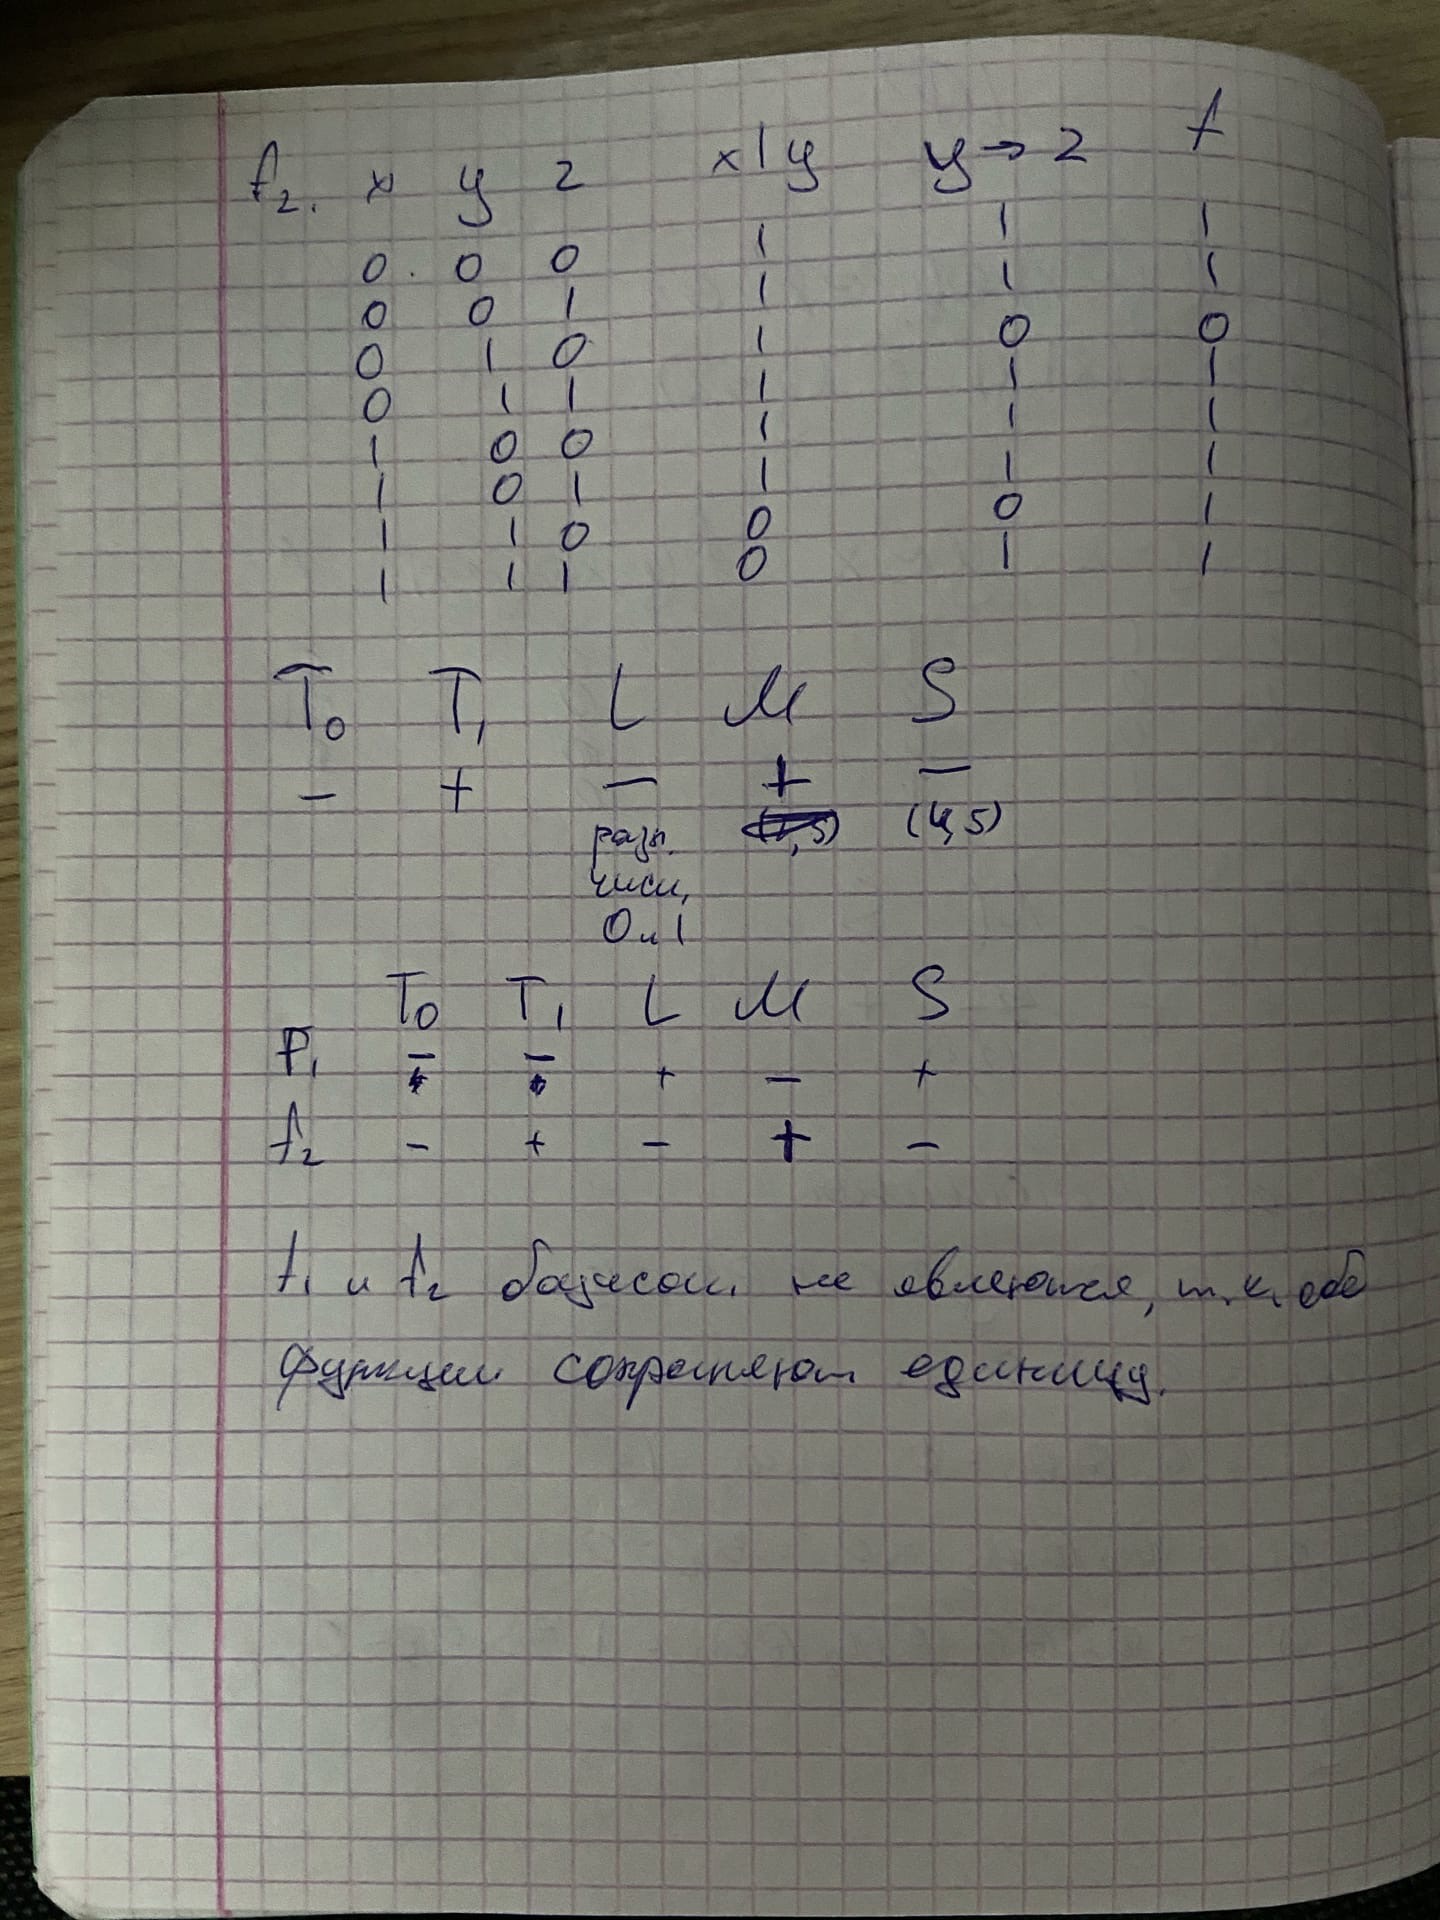 f₂. x y z x|y y→z f
0 0 0 1 1 1
0 0 1 1 1 1
0 1 0 1 0 0
0 1 1 1 1 1
1 0 0 1 1 1
1 0 1 1 1 1
1 1 0 0 0 1
1 1 1 0 1 1
T₀ T₁ L M S
− + − + −
разн. (4,5)
числ,
0 и 1
T₀ T₁ L M S
F₁ − − + − +
f₂ − + − + −
f₁ и f₂ базисом не являются, т.к. обе
функции сохраняют единицу.